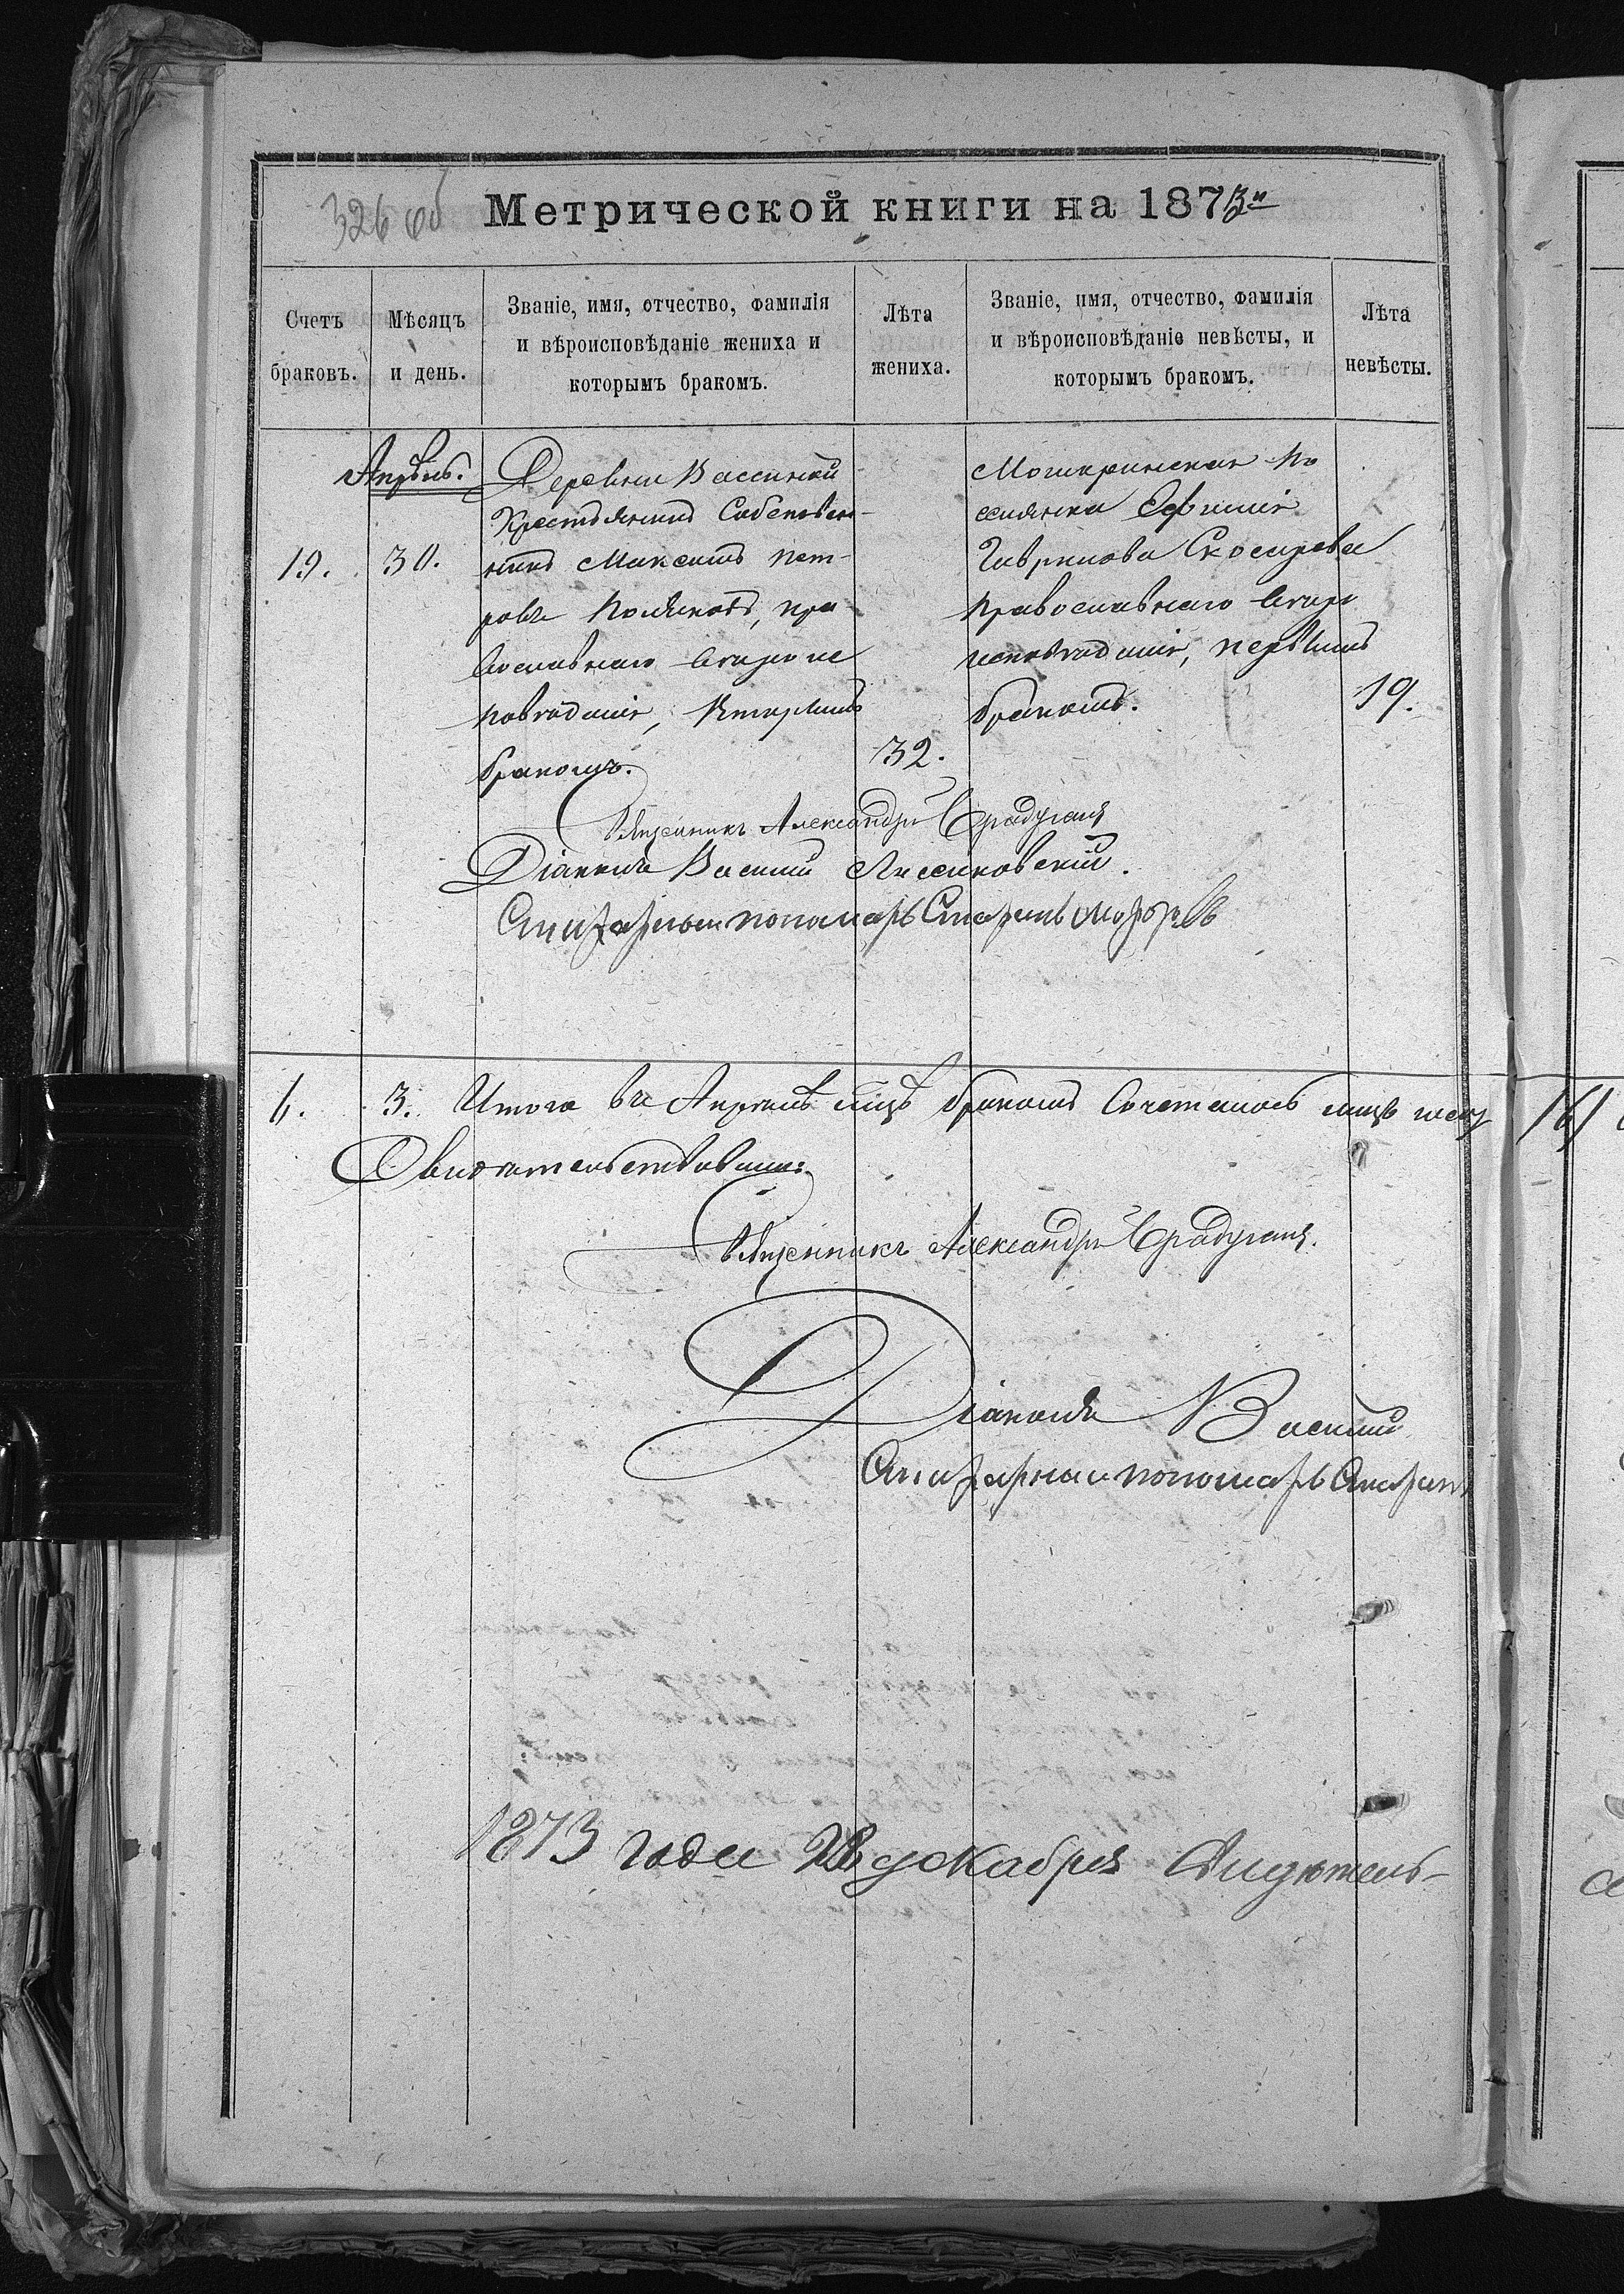 326 об
Метрической книги на 1873й
Счетъ браковъ.
Мѣсяцъ и день.
Званіе, имя, отчество, фамилія и вѣроисповѣданіе жениха и которымъ бракомъ.
Лѣта жениха.
Званіе, имя, отчество, фамилія и вѣроисповѣданіе невѣсты, и которымъ бракомъ.
Лѣта невѣсты.
Апрѣль.
19.
30.
Деревни Вассиной
Крестьянинъ Собственн-
никъ Максимъ Пет-
ровъ Поляковъ, пра
вославнаго вѣроис
повѣданія, вторымъ
бракомъ.
32.
Мошкринская По
селянка Евфимія
Гаврилова Скосырева
Православнаго вѣро
исповѣданія, первымъ
бракомъ.
19.
Священникъ Александръ
Діаконъ Василий Лясковскій.
пономарь
6.
3. Итого въ Апрѣлѣ мцѣ бракомъ Сочеталось лицъ шесть /6/
Свидѣтельствовали:
Священникъ Александръ
Діаконъ Василий
пономарь
1873 года 28 декабря Свидѣтель-